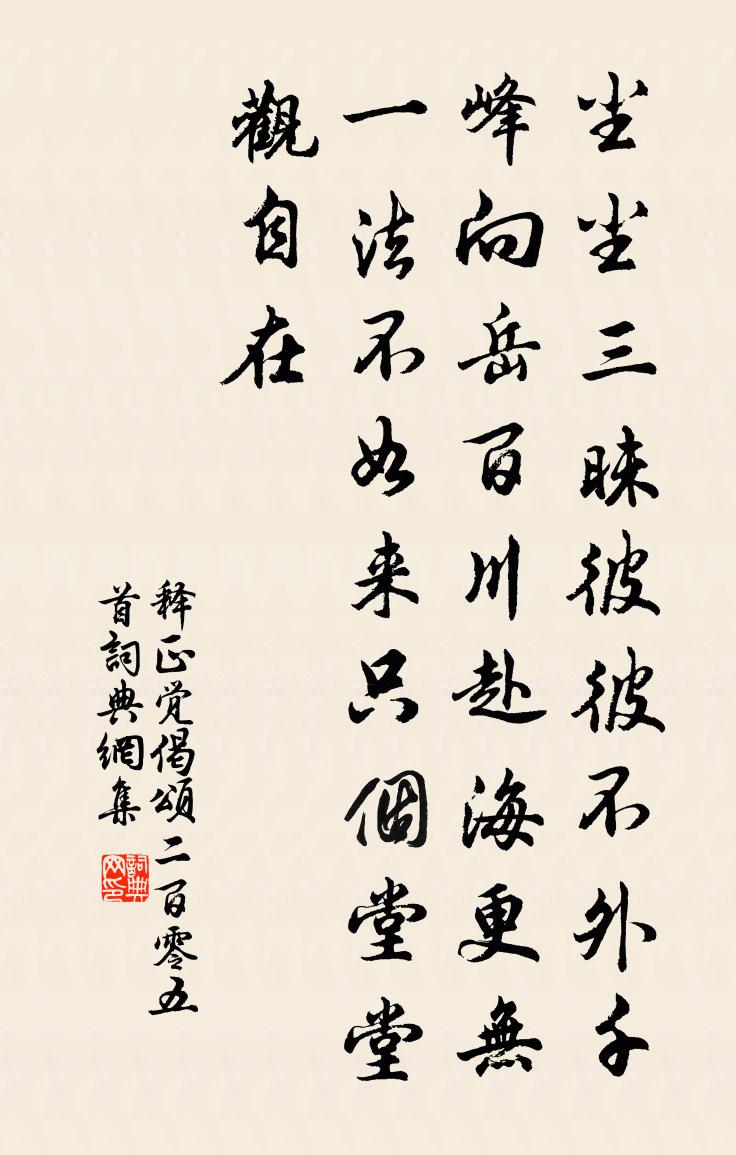 尘尘三昧彼彼不外千
峰向岳百川赴海更無
一法不如来只個堂堂
觀自在
释正觉偈頌二百零五
首詞典網集
詞典网印